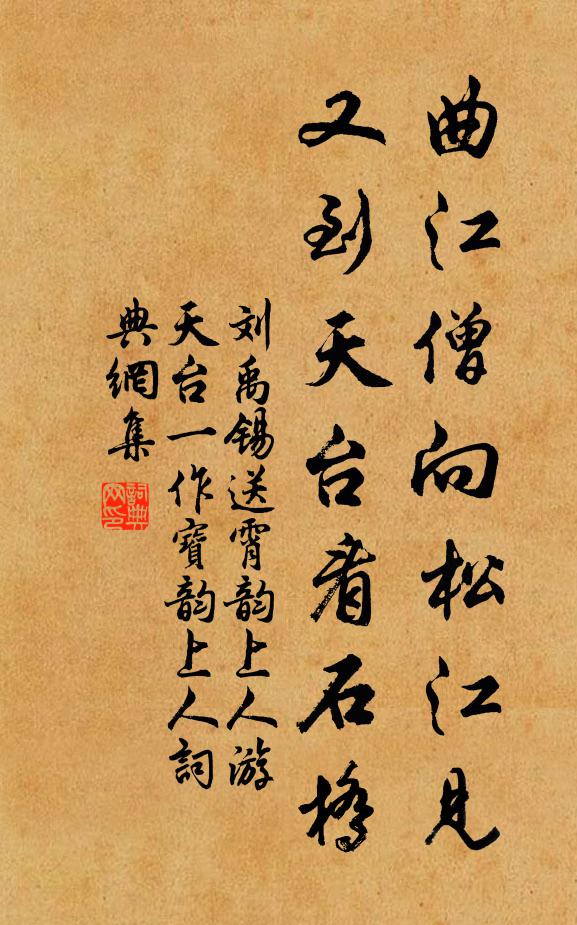 曲江僧向松江见
又到天台看石橋
刘禹锡送霄韵上人游
天台一作寶韵上人詞
典網集
詞典
网印